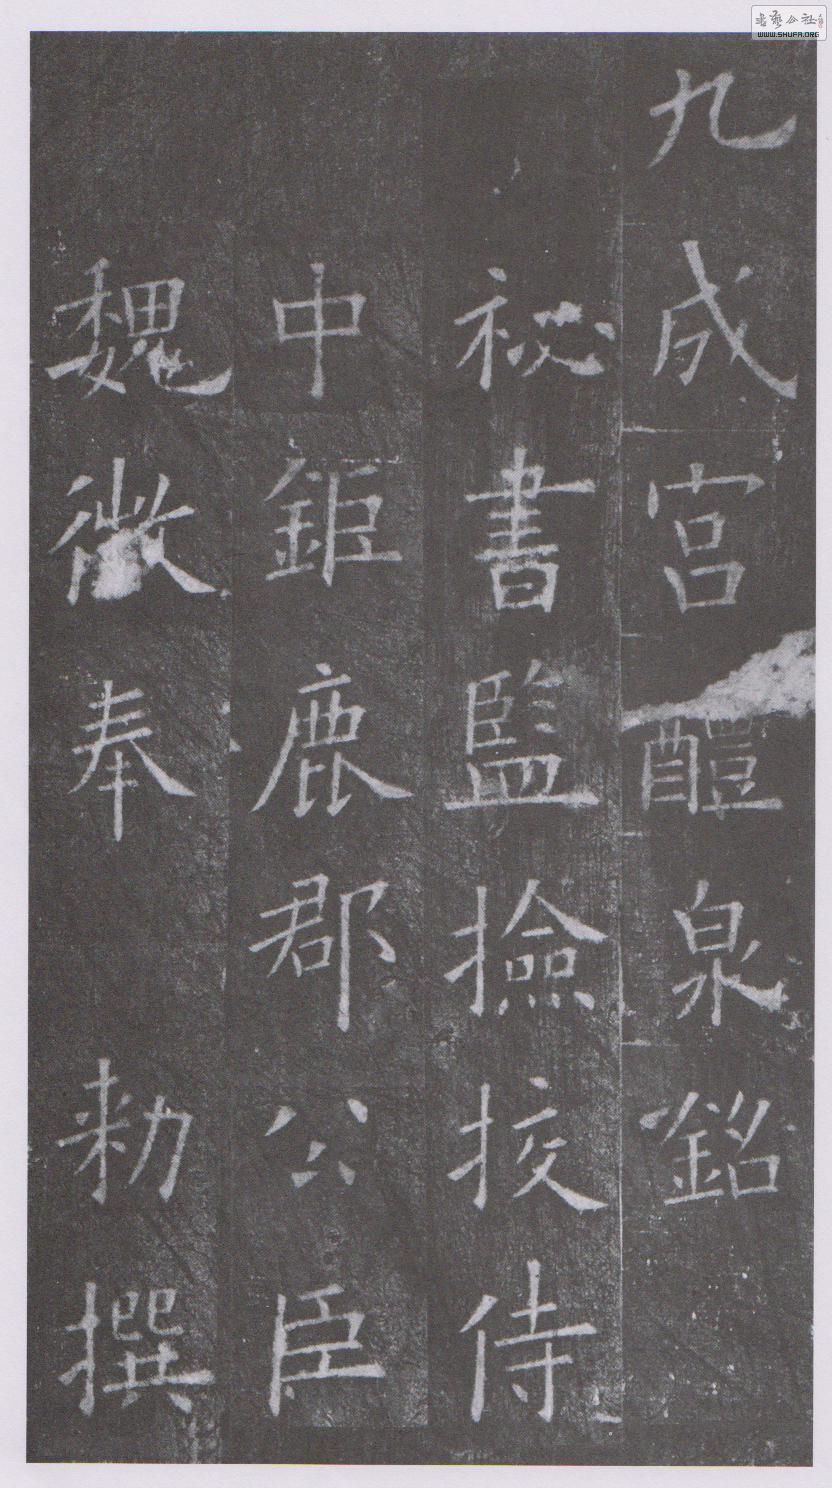 九成宮醴泉銘
祕書監撿挍侍
中鉅鹿郡公臣
魏徵奉勑撰
書藝公社
WWW.SHUFA.ORG